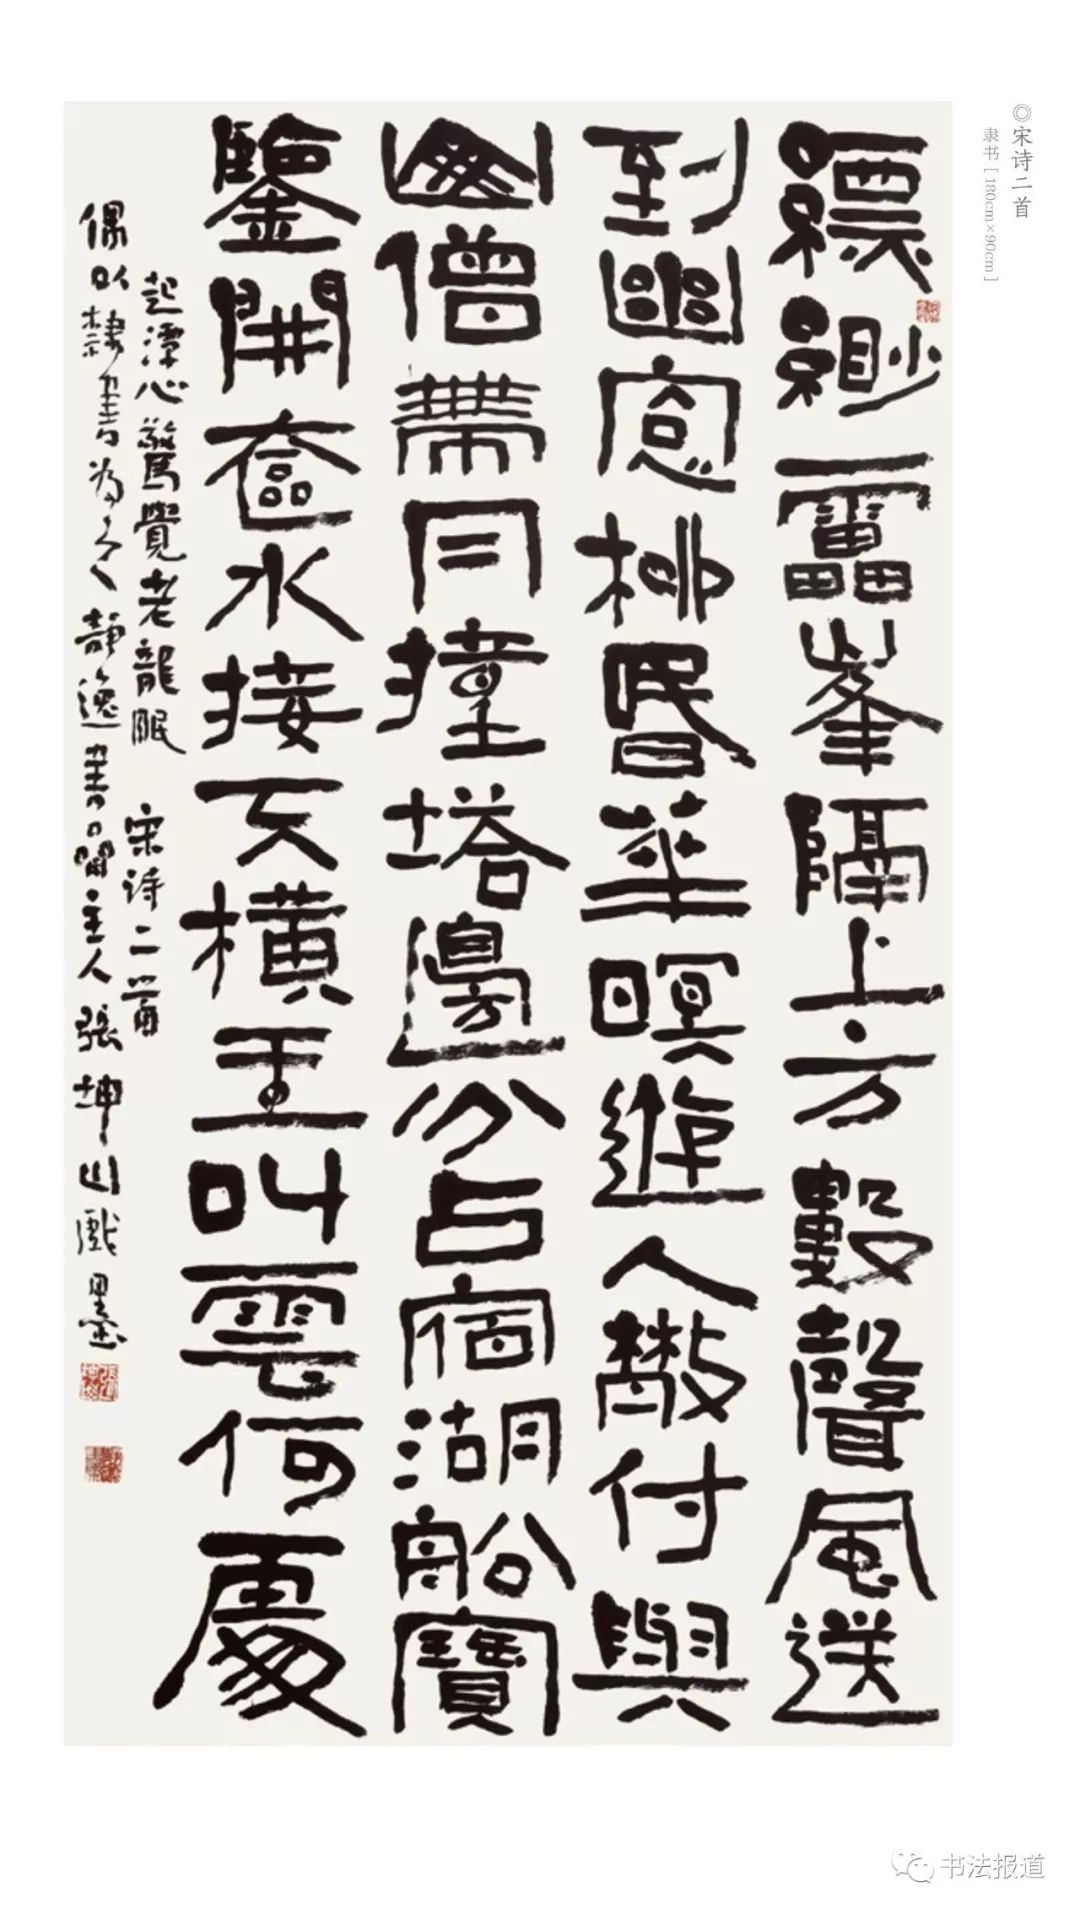 ◎宋诗二首
隶书［180cm×90cm］
縹緲雷峯隔上方數聲風送
到幽窻柳昏華暝遊人散付與
僧帶月撞塔邊分占宿湖船寶
鑒開奩水接天橫玉叫雲何處
起潭心驚覺老龍眠 宋詩二首
偶以隸書為之 静逸書閣主人張坤山戲墨
书法报道